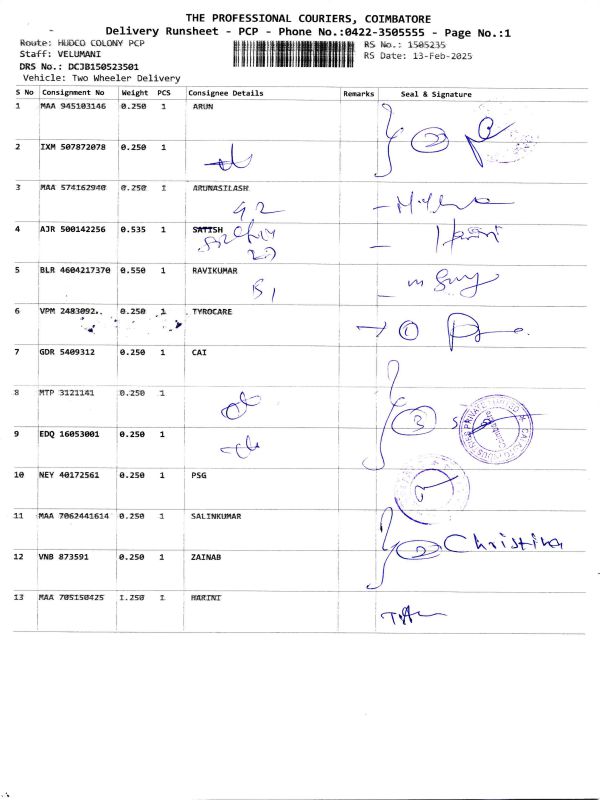 THE PROFESSIONAL COURIERS, COIMBATORE
Delivery Runsheet - PCP - Phone No.:0422-3505555 - Page No.:1
Route: HUDCO COLONY PCP RS No.: 1505235
Staff: VELUMANI RS Date: 13-Feb-2025
DRS No.: DCJB150523501
Vehicle: Two Wheeler Delivery
S No Consignment No Weight PCS Consignee Details Remarks Seal & Signature
1 MAA 945103146 0.250 1 ARUN
2
2 IXM 507872078 0.250 1
3 MAA 574162940 0.250 1 ARUNASILASH
92
4 AJR 500142256 0.535 1 SATISH
5 BLR 4604217370 0.550 1 RAVIKUMAR
B1
6 VPM 2483092 0.250 1 TYROCARE
1
7 GDR 5409312 0.250 1 CAI
8 MTP 3121141 0.250 1
3
9 EDQ 16053001 0.250 1
10 NEY 40172561 0.250 1 PSG
11 MAA 7062441614 0.250 1 SALINKUMAR
2 Christina
12 VNB 873591 0.250 1 ZAINAB
13 MAA 705150425 1.250 1 HARINI